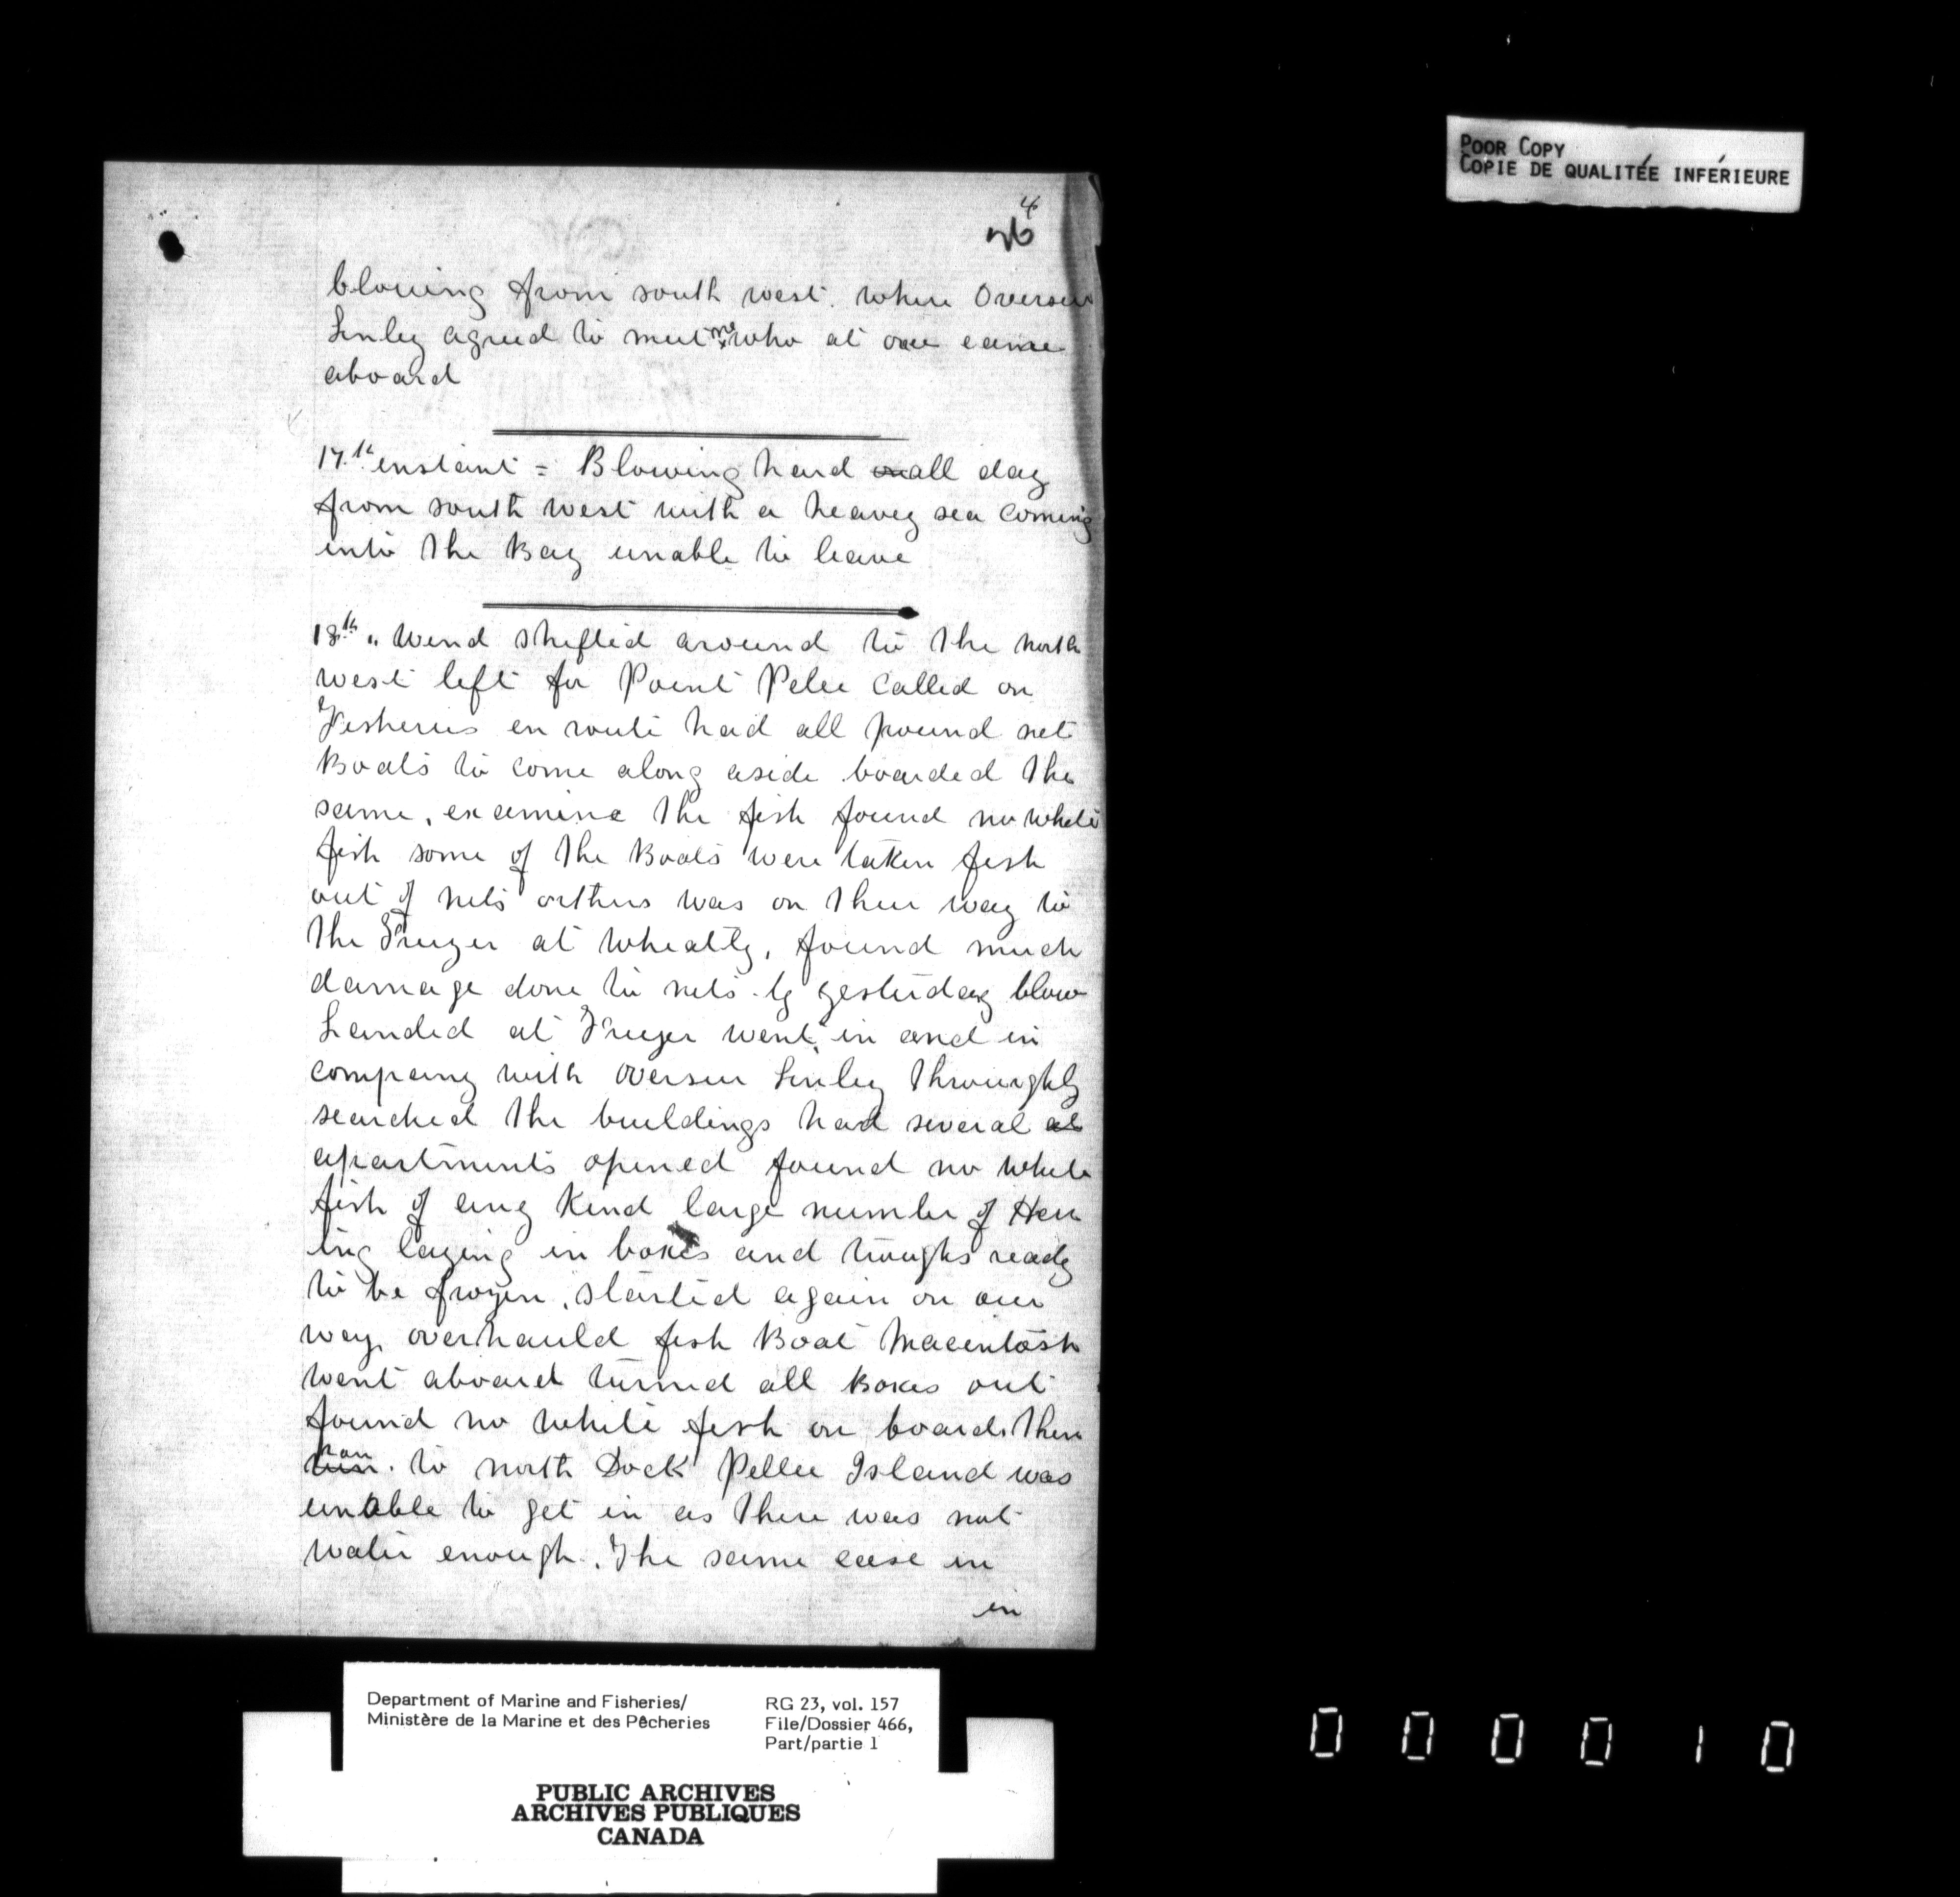 POOR COPY
COPIE DE QUALITÉE INFÉRIEURE
4
blowing from south west. where Overseer
agreed to meet me who at once came
aboard
17.th instant = Blowing hard all day
from south west with a heavey sea coming
into the Bay unable to leave
18th " Wind shifted around to the north
west left for Point Pelee called on
Fisheries en route had all pound net
Boats to come along aside boarded the
same, examine the fish found no white
fish some of the Boats were taken fish
out of nets orthers was on their way to
the Freezer at Wheatly, found much
damage done to nets by yesterday blow
Landed at Freezer went in and in
company with overseer throughly
searched the buildings had several al
apartments opened found no white
fish of any Kind large number of Herr
ing laying in boxes and troughs ready
to be frozen, started again on our
way, overhauld fish Boat Macentosh
went aboard turned all Boxes out
found no white fish on board. then
ran. to north Dock Pellee Island was
unable to get in as there was not
water enough. The same case in
in
Department of Marine and Fisheries/
Ministère de la Marine et des Pêcheries
RG 23, vol. 157
File/Dossier 466,
Part/partie 1
PUBLIC ARCHIVES
ARCHIVES PUBLIQUES
CANADA
000010